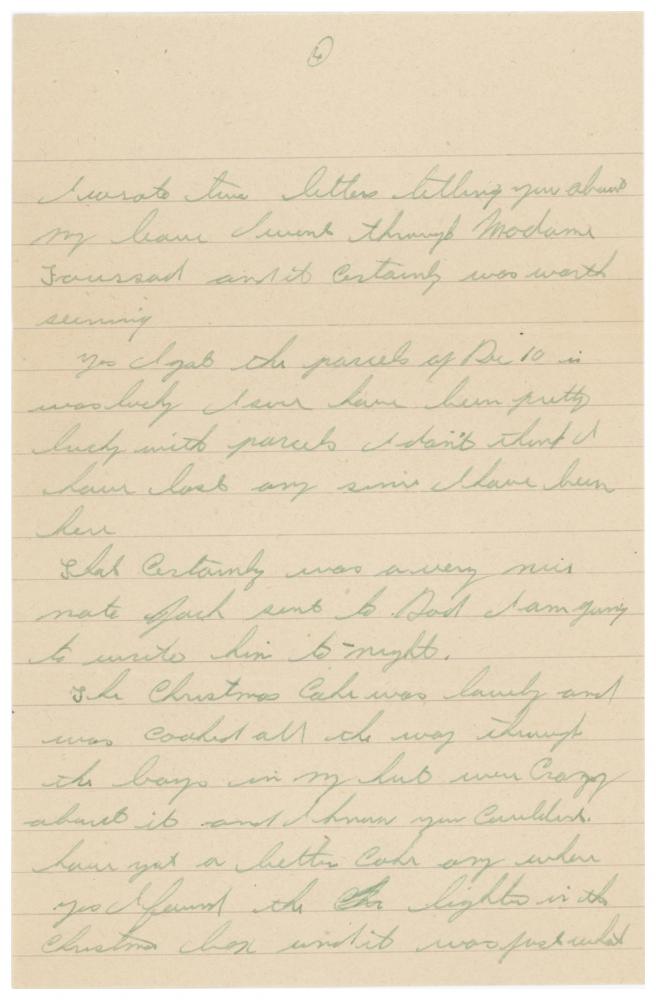 4
I wrote two letters telling you about
my leave I went through Madame
and it certainly was worth
seeing
Yes I got the parcels of Dec 10 it
was lucky I sure have been pretty
lucky with parcels I don't think I
have lost any since I have been
here
That Certainly was a very nice
note Jack sent to Dad I am going
to write him to-night.
The Christmas Cake was lovely and
was cooked all the way through
the boys in my hut were Crazy
about it and I know you Couldn't.
have got a better Cake any where
yes I found the lights in the
Christmas box and it was just what